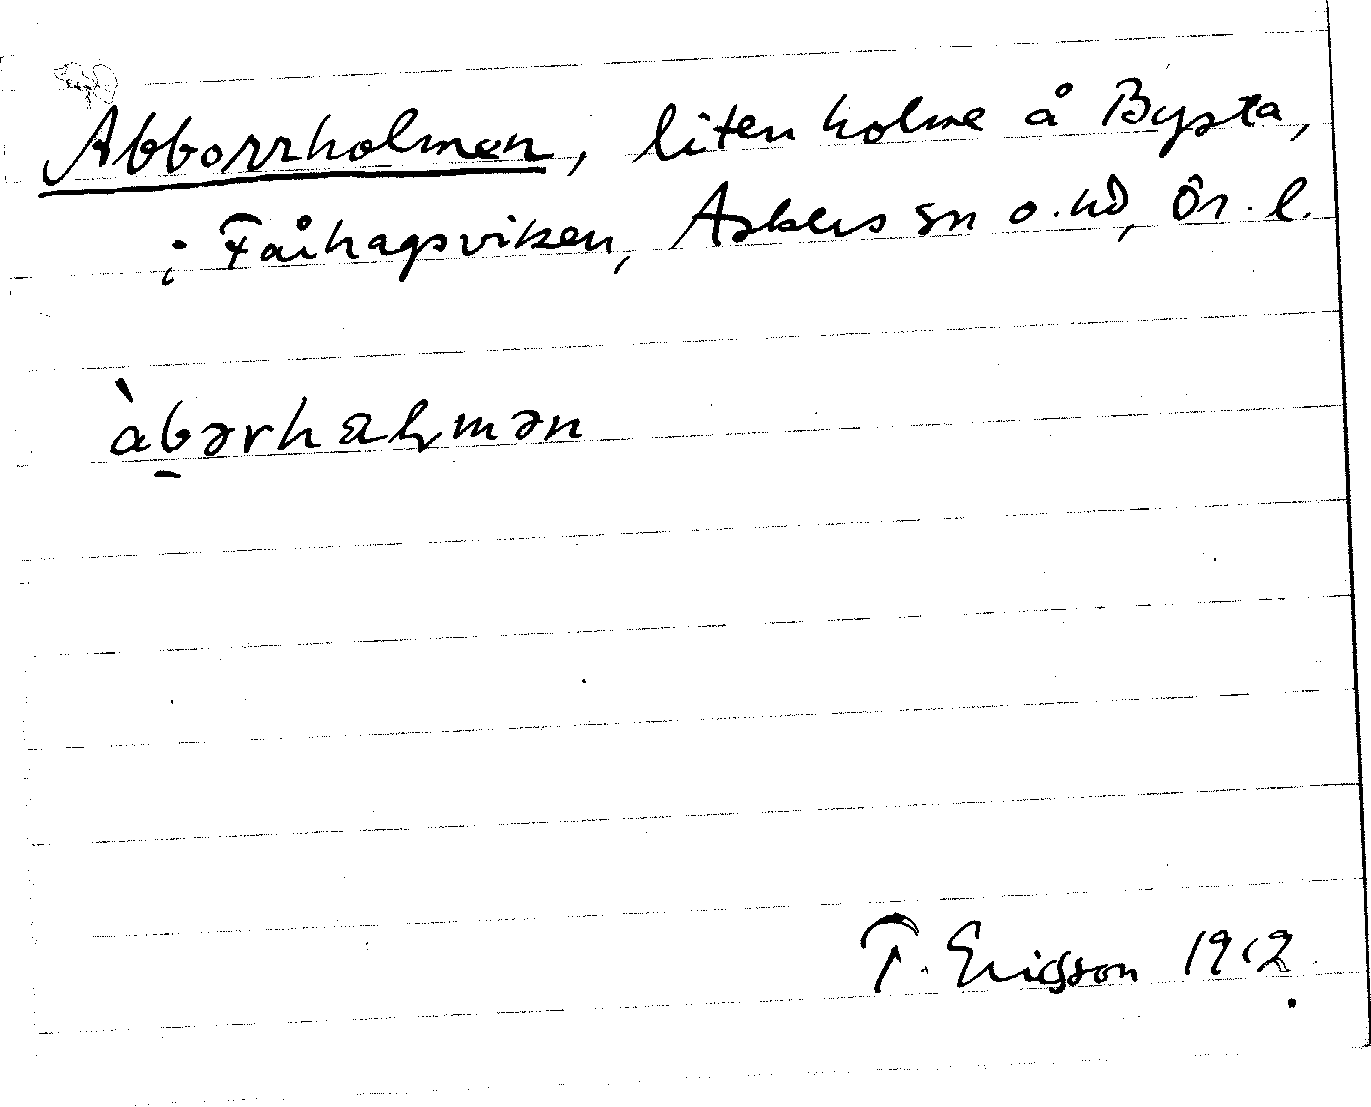 Abborrholmen, liten holme å Bysta,
i Fårhagsviken, Askers sn o. hd, Ör. l.
àbərhaḷmən
T. Ericsson 1912